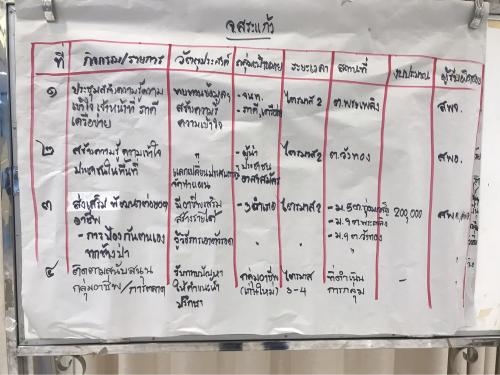 จ.สระแก้ว
ที่ กิจกรรม/รายการ วัตถุประสงค์ กลุ่มเป้าหมาย ระยะเวลา สถานที่ งบประมาณ ผู้รับผิดชอบ
๑ ประชุมสร้างความรู้ความ ทบทวนข้อมูล - จนท. ไตรมาส 2 ต.พระเพลิง สพจ.
เข้าใจ เจ้าหน้าที่ ภาคี สร้างความรู้ - ภาคีเครือข่าย
เครือข่าย ความเข้าใจ
๒ สร้างความรู้ ความเข้าใจ - ผู้นำ ไตรมาส 2 ต.วังทอง สพอ.
ประชาชนในพื้นที่ แลกเปลี่ยน ประชาชน
อาสาสมัคร
๓ ส่งเสริม พัฒนาต่อยอด มีอาชีพเสริม - 3 อำเภอ ไตรมาส 2 200,000
อาชีพ สร้างรายได้ - ม.๑ ต.พระเพลิง
- การป้องกันตนเอง - ม.๑ ต.วังทอง
จากช้างป่า
๔ ติดตามสนับสนุน รับทราบปัญหา กลุ่มอาชีพ ไตรมาส ที่ดำเนิน -
กลุ่มอาชีพ/การตลาด ให้คำแนะนำ 3-4 การกลุ่ม
ปรึกษา